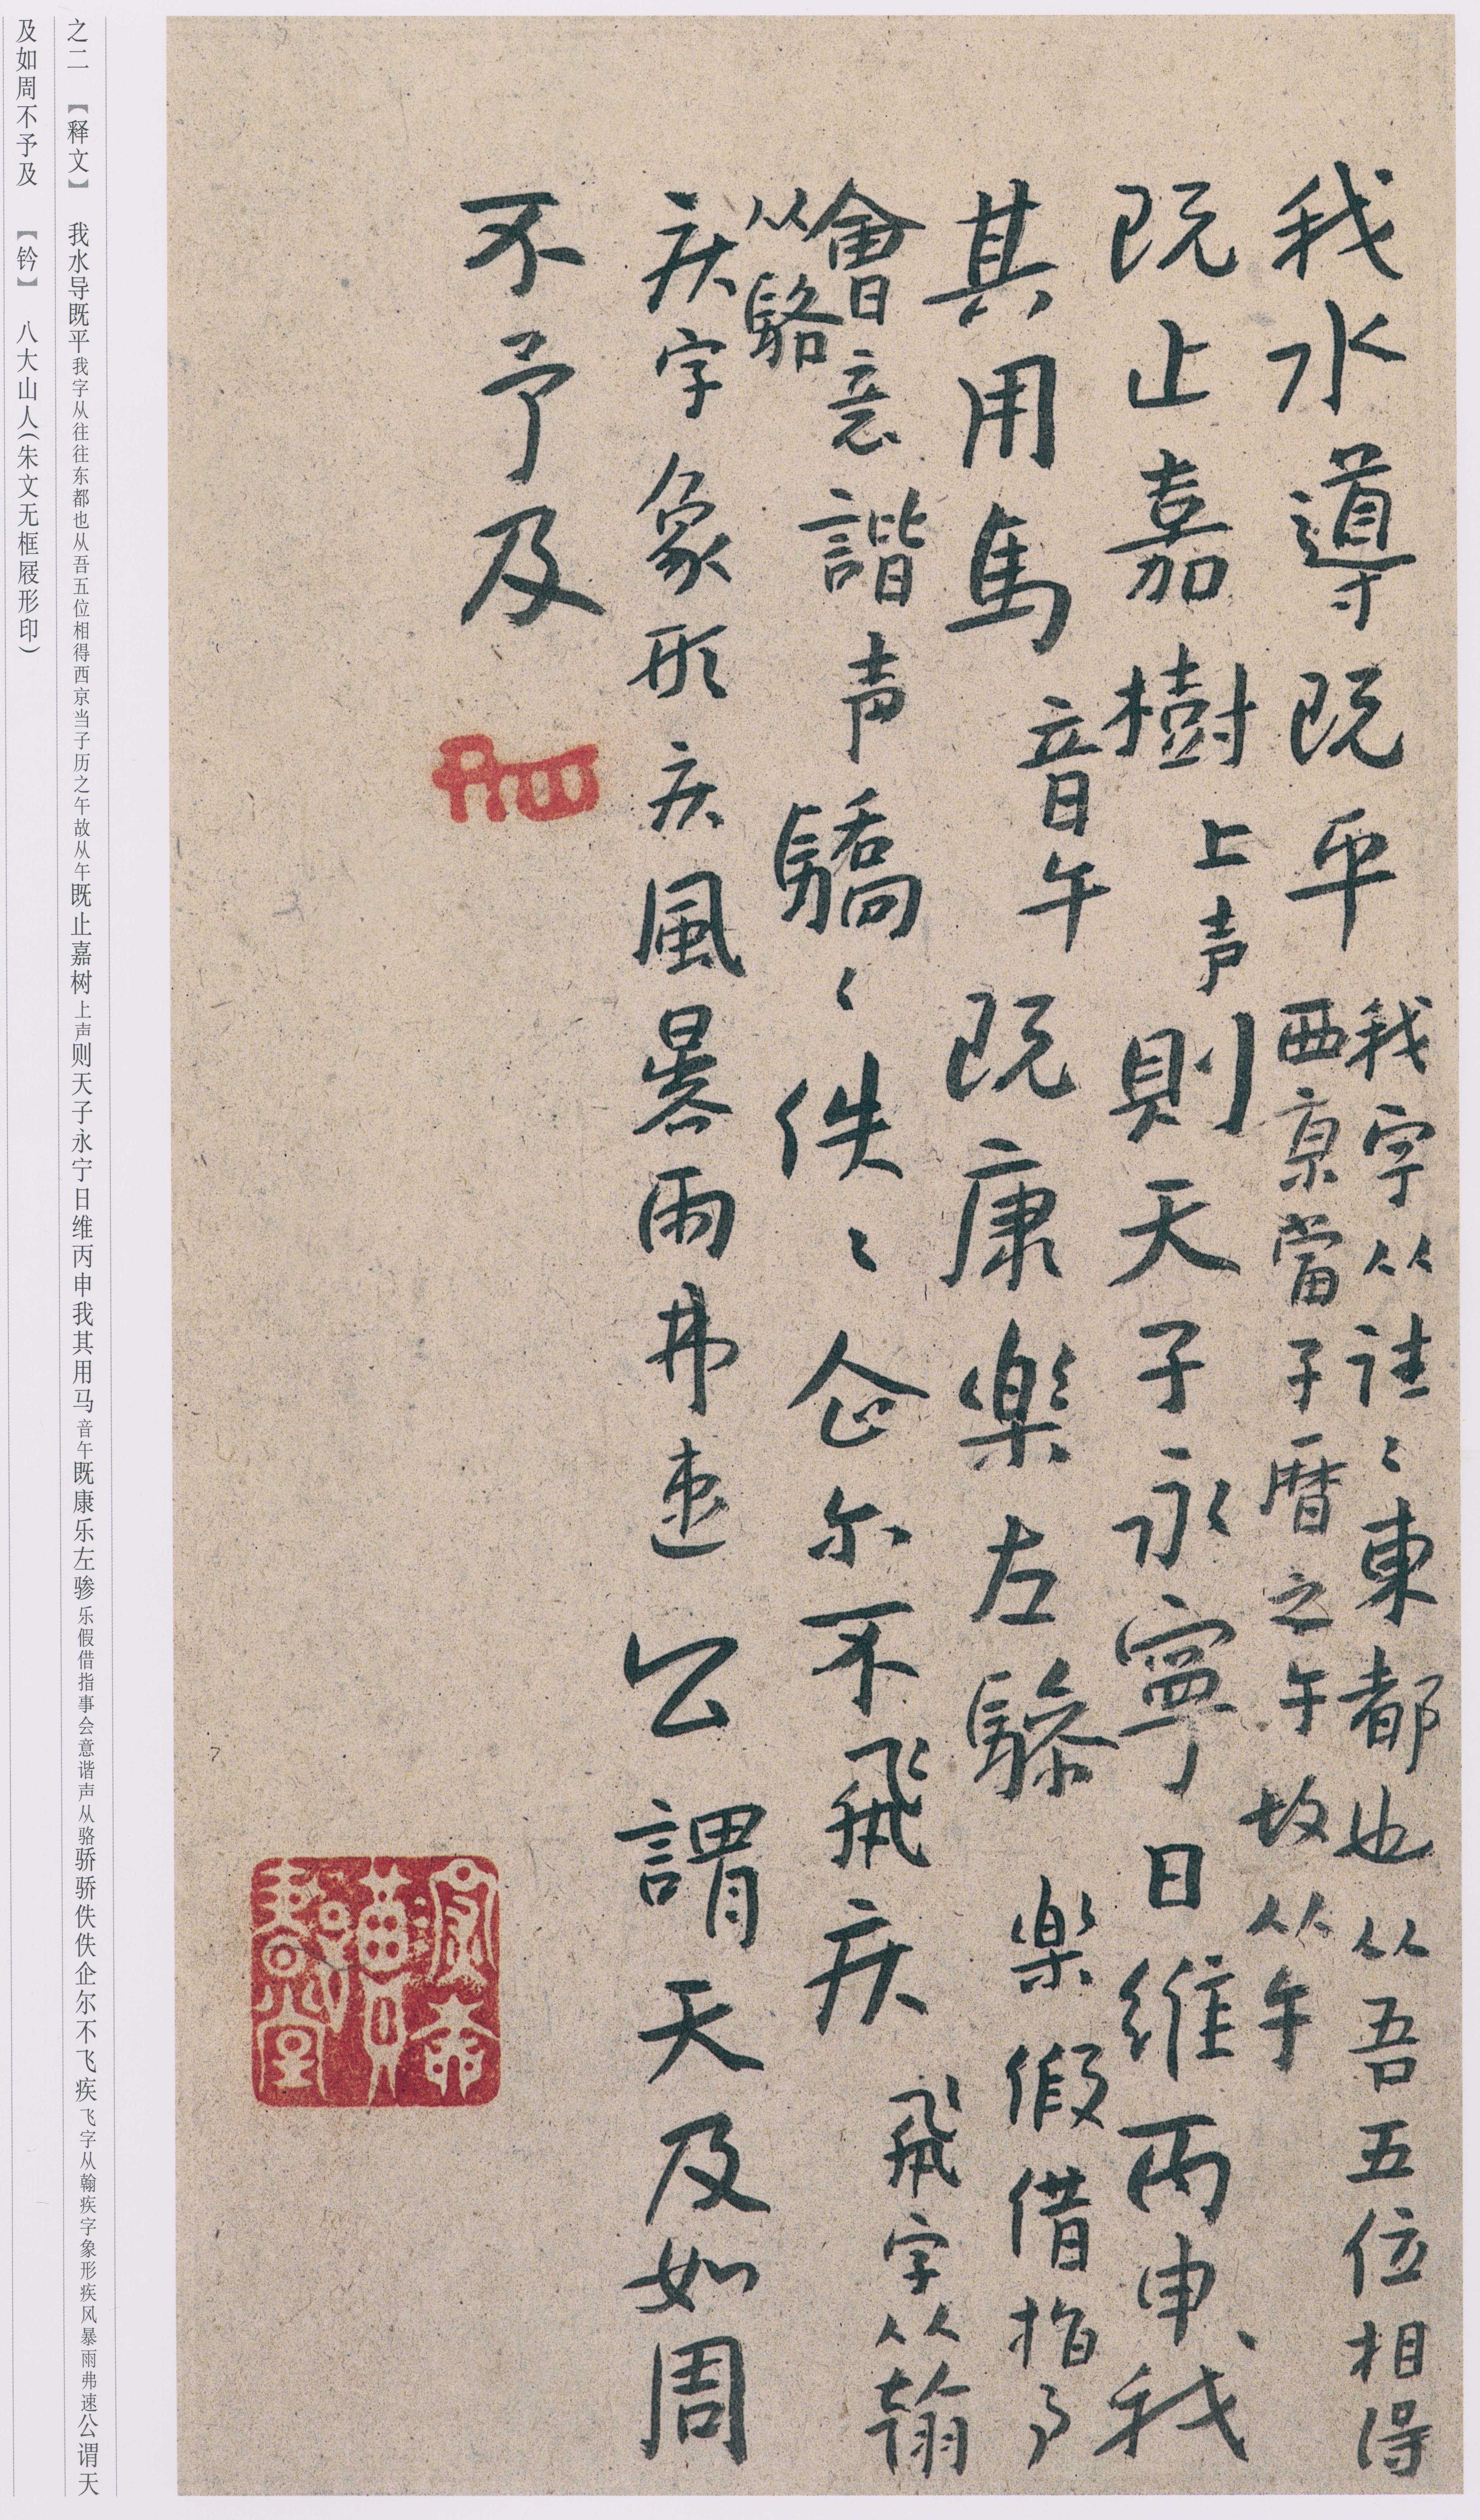 我水導既平我字从往〻東都也从吾五位相得
西京當子曆之午故从午
既止嘉樹上声則天子永寧日維丙申我
其用馬音午既康樂左驂樂假借指事
會意諧声
从駱
驕〻佚〻企尔不飛疾飛字从翰
疾字象形疾風暴雨弗速公謂天及如周
不予及
之二 【释文】 我水导既平我字从往往东都也从吾五位相得西京当子历之午故从午既止嘉树上声则天子永宁日维丙申我其用马音午既康乐左骖乐假借指事会意谐声从骆骄骄佚佚企尔不飞疾飞字从翰疾字象形疾风暴雨弗速公谓天
及如周不予及 【钤】 八大山人(朱文无框屐形印)